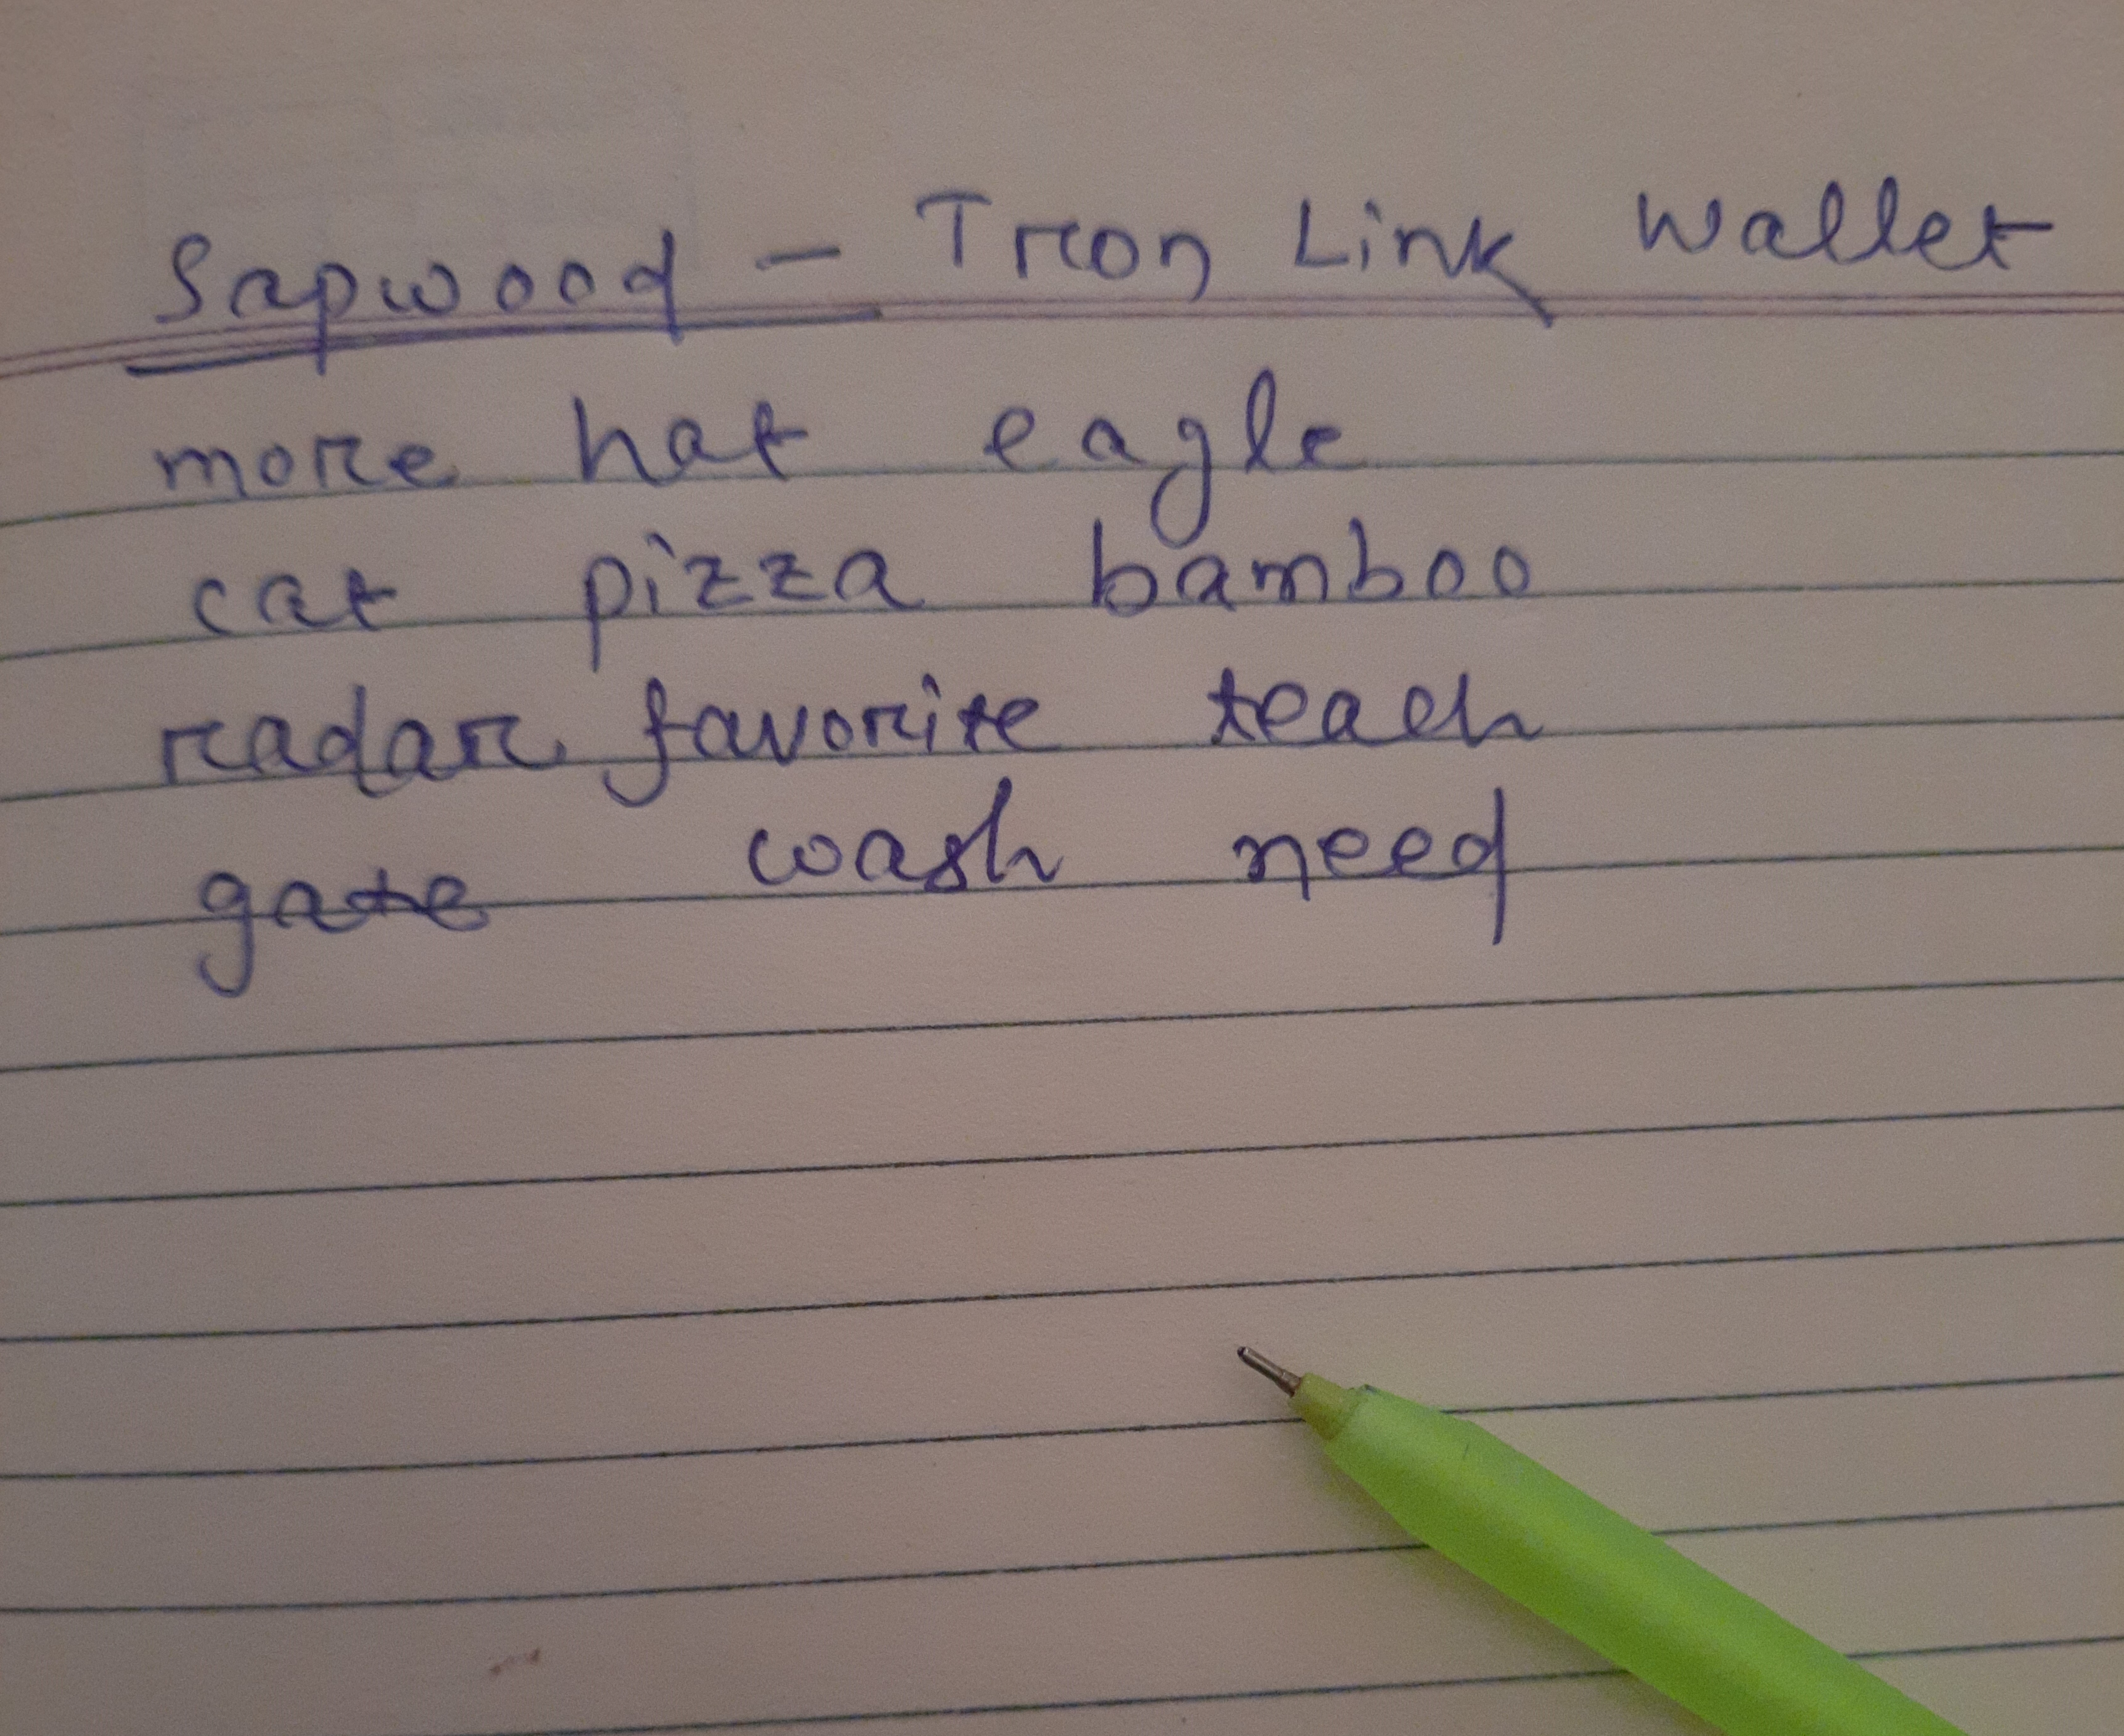 Sapwood - Tron Link Wallet
more hat eagle
cat pizza bamboo
radar favorite teach
gate wash need